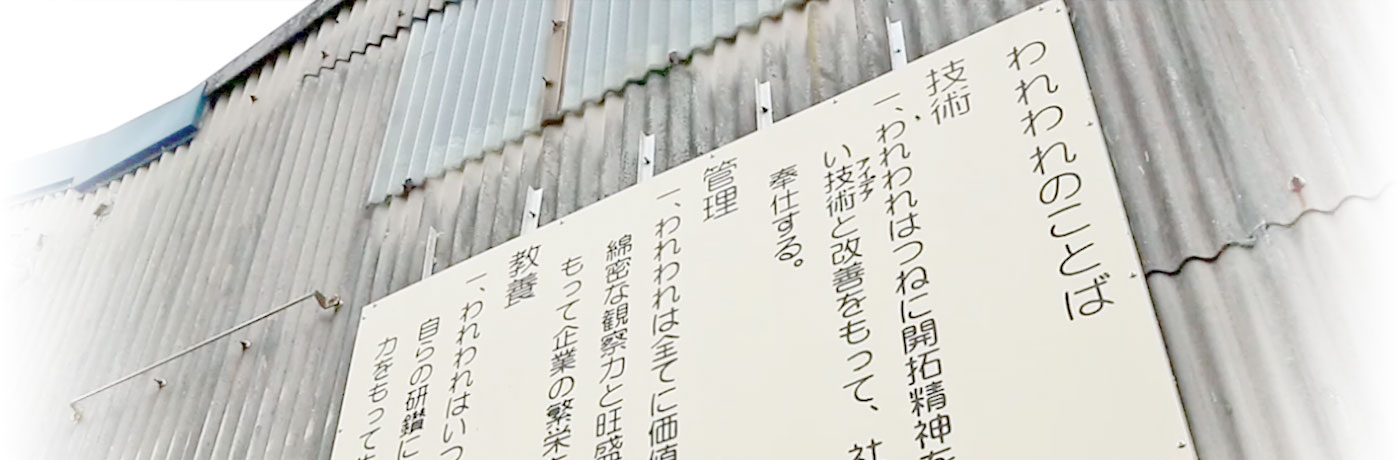 われわれのことば
技術
一、われわれはつねに開拓精神を
い技術と改善をもって、社
アイデア
奉仕する。
管理
一、われわれは全てに価値
綿密な観察力と旺盛
もって企業の繁栄
教養
一、われわれはいつ
自らの研鑽に
力をもって